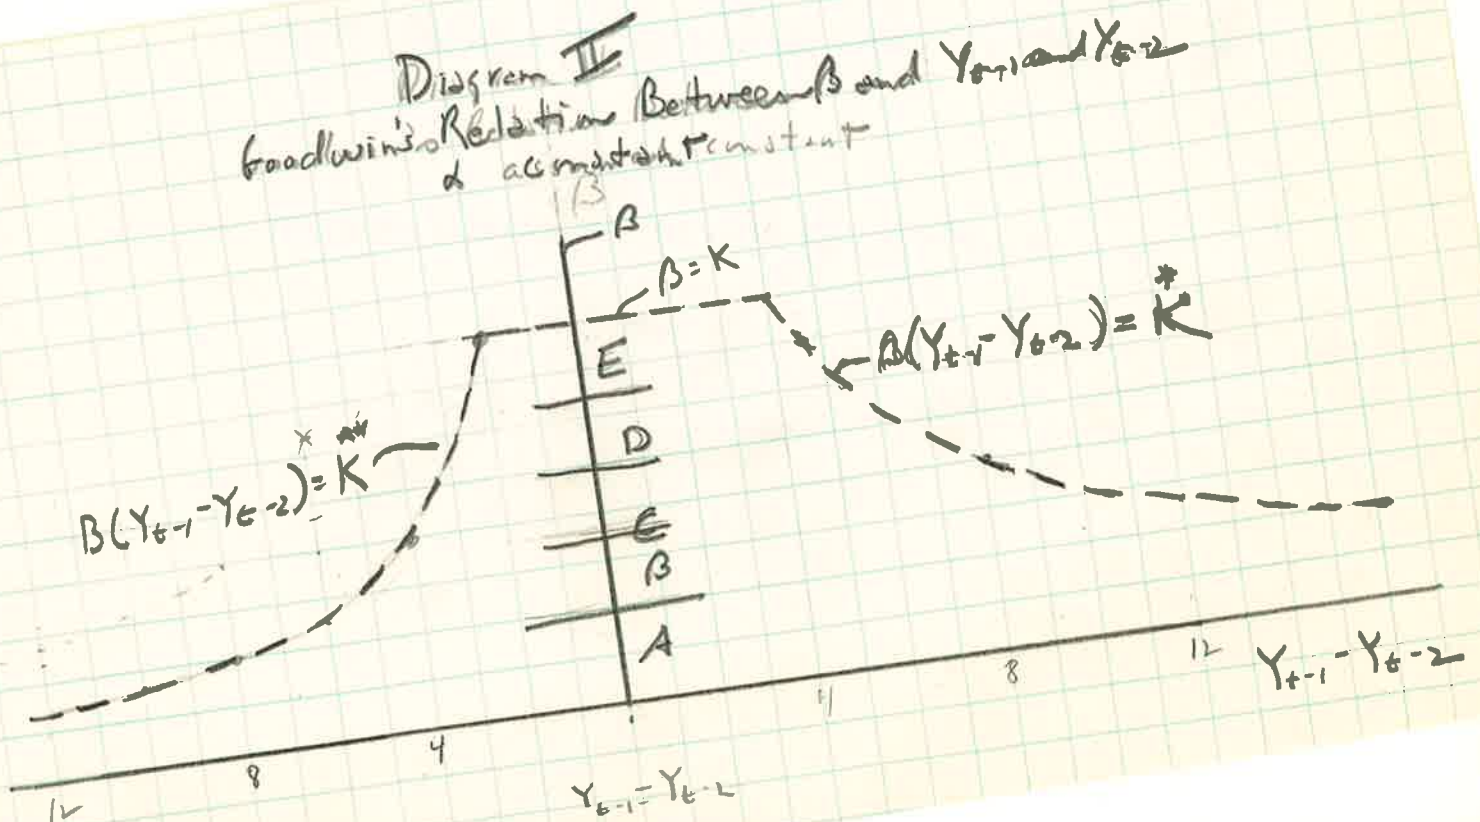 Diagram II
Goodwin's Relation Between β and Yt-1 and Yt-2
α constant
β
β
β = K
B(Yt-1 - Yt-2) = K*
E
D
C
B
A
B(Yt-1 - Yt-2) = K**
12
8
4
4
8
12
Yt-1 - Yt-2
Yt-1 = Yt-2